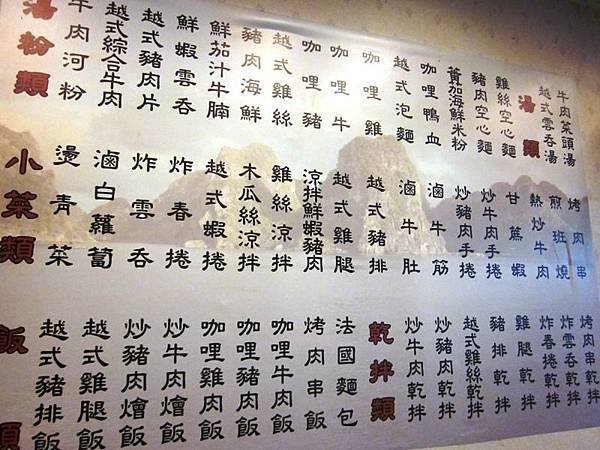 湯粉類
牛肉河粉
越式綜合牛肉
越式豬肉片
鮮蝦雲吞
鮮茄汁牛腩
豬肉海鮮
越式雞絲
咖哩豬
咖哩牛
咖哩雞
越式泡麵
咖哩鴨血
簣加海鮮米粉
豬肉空心麵
雞絲空心麵
湯類
越式雲吞湯
牛肉菜頭湯
小菜類
燙青菜
滷白蘿蔔
炸雲吞
炸春捲
越式蝦捲
木瓜絲涼拌
雞絲涼拌
涼拌鮮蝦豬肉
越式雞腿
越式豬排
滷牛肚
滷牛筋
炒豬肉手捲
炒牛肉手捲
甘蔗蝦
熱炒牛肉
煎班燒
烤肉串
飯類
越式豬排飯
越式雞腿飯
炒豬肉燴飯
炒牛肉燴飯
咖哩雞肉飯
咖哩豬肉飯
咖哩牛肉飯
烤肉串飯
法國麵包
乾拌類
炒牛肉乾拌
炒豬肉乾拌
越式雞絲乾拌
豬排乾拌
雞腿乾拌
炸春捲乾拌
炸雲吞乾拌
烤肉串乾拌